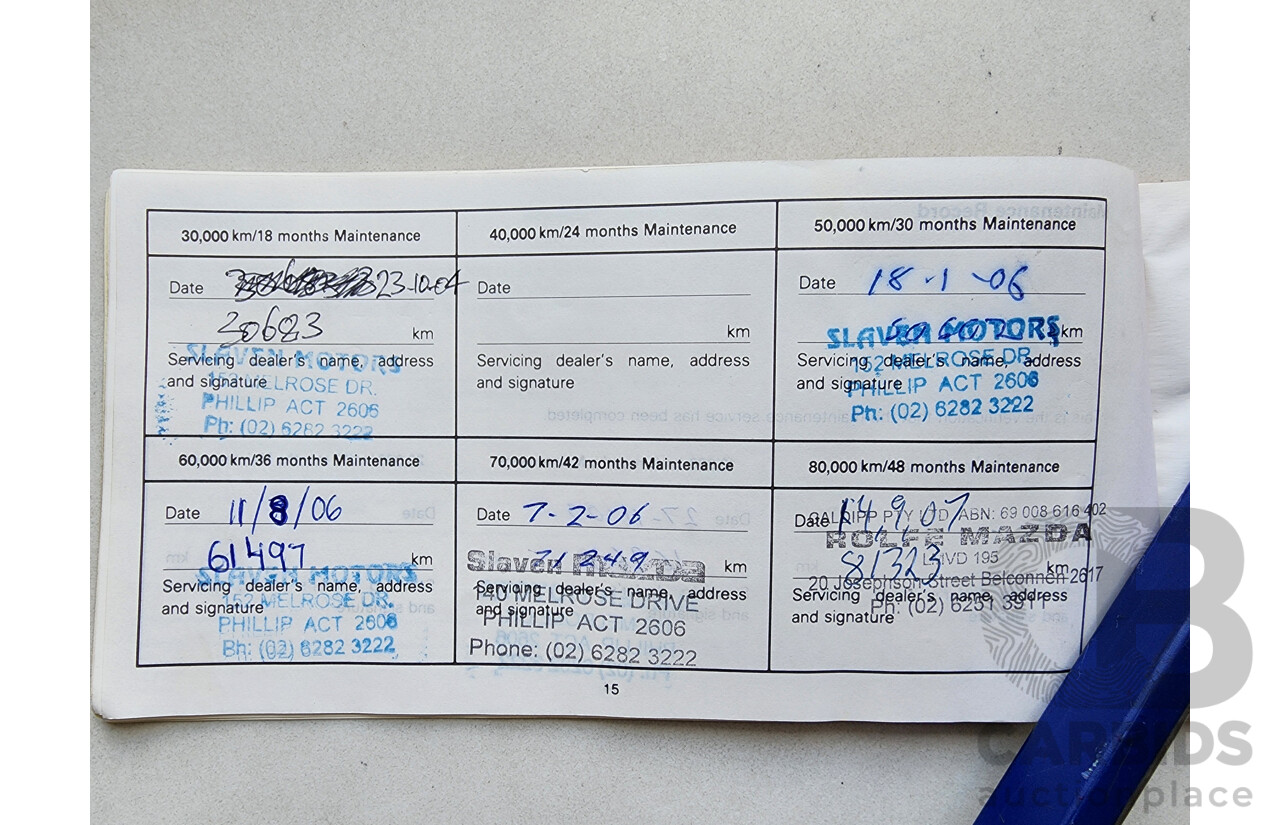 30,000 km/18 months Maintenance
Date 23-10-04
30683 km
Servicing dealer's name, address
and signature
SLAVEN MOTORS
152 MELROSE DR.
PHILLIP ACT 2606
Ph: (02) 6282 3222
40,000 km/24 months Maintenance
Date
km
Servicing dealer's name, address
and signature
50,000 km/30 months Maintenance
Date 18-1-06
km
Servicing dealer's name, address
and signature
SLAVEN MOTORS
152 MELROSE DR.
PHILLIP ACT 2606
Ph: (02) 6282 3222
60,000 km/36 months Maintenance
Date 11/8/06
61497 km
Servicing dealer's name, address
and signature
SLAVEN MOTORS
152 MELROSE DR.
PHILLIP ACT 2606
Ph: (02) 6282 3222
70,000 km/42 months Maintenance
Date 7-2-06
71249 km
Servicing dealer's name, address
and signature
Slaven Mazda
140 MELROSE DRIVE
PHILLIP ACT 2606
Phone: (02) 6282 3222
80,000 km/48 months Maintenance
Date 14.9.07
81323 km
Servicing dealer's name, address
and signature
PTY LTD ABN: 69 008 616 402
ROLFE MAZDA
LMVD 195
20 Josephson Street Belconnen 2617
Ph: (02) 6251 3911
15
Maintenance Record
maintenance service has been completed
CARBIDS
auctionplace